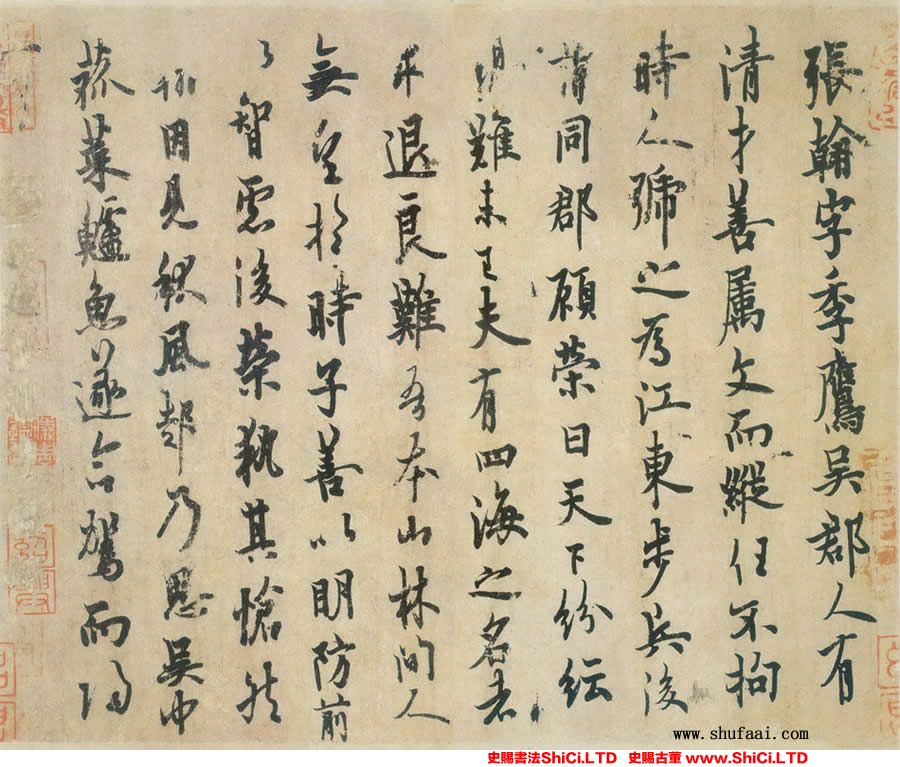 張翰字季鷹吳郡人有
清才善屬文而縱任不拘
時人號之為江東步兵後
謂同郡顧榮曰天下紛紜
禍難未已夫有四海之名者
求退良難吾本山林間人
無望於時子善以明防前
以智慮後榮執其愴然
翰因見秋風起乃思吳中
菰菜鱸魚遂命駕而歸
www.shufaai.com
史賜書法ShiCi.LTD 史賜古董 www.ShiCi.LTD